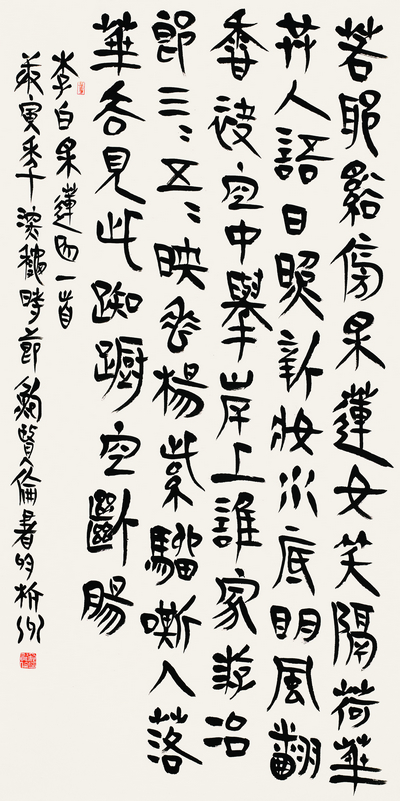 若耶谿傍采蓮女笑隔荷華
共人語日照新妝水底明風翻
香袂空中舉岸上誰家游冶
郎三〻五〻映垂楊紫騮嘶入落
華去見此踟躕空斷腸
李白采蓮曲一首
庚寅季深穐時節賢倫書於州